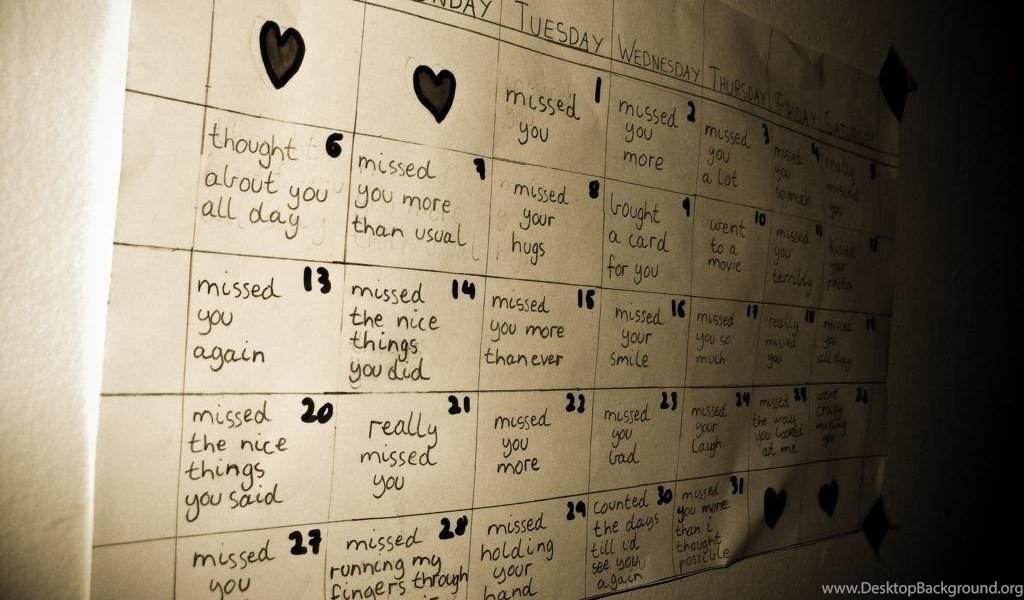 NDAY TUESDAY WEDNESDAY THURSDAY FRIDAY SATURDAY
1
missed
you
2
missed
you
more
3
missed
you
a lot
4
missed
you
so much
5
really
missed
you
6
thought
about you
all day
7
missed
you more
than usual
8
missed
your
hugs
9
bought
a card
for you
10
went
to a
movie
11
missed
you
terribly
12
kissed
your
photos
13
missed
you
again
14
missed
the nice
things
you did
15
missed
you more
than ever
16
missed
your
smile
17
missed
you so
much
18
really
missed
you
19
missed
you
all day
20
missed
the nice
things
you said
21
really
missed
you
22
missed
you
more
23
missed
you
bad
24
missed
your
laugh
25
missed
the way
you looked
at me
26
went
crazy
missing
you
27
missed
you
28
missed
running my
fingers through
29
missed
holding
your
hand
30
counted
the days
till i'd
see you
again
31
missed
you more
than i
thought
possible
www.DesktopBackground.org